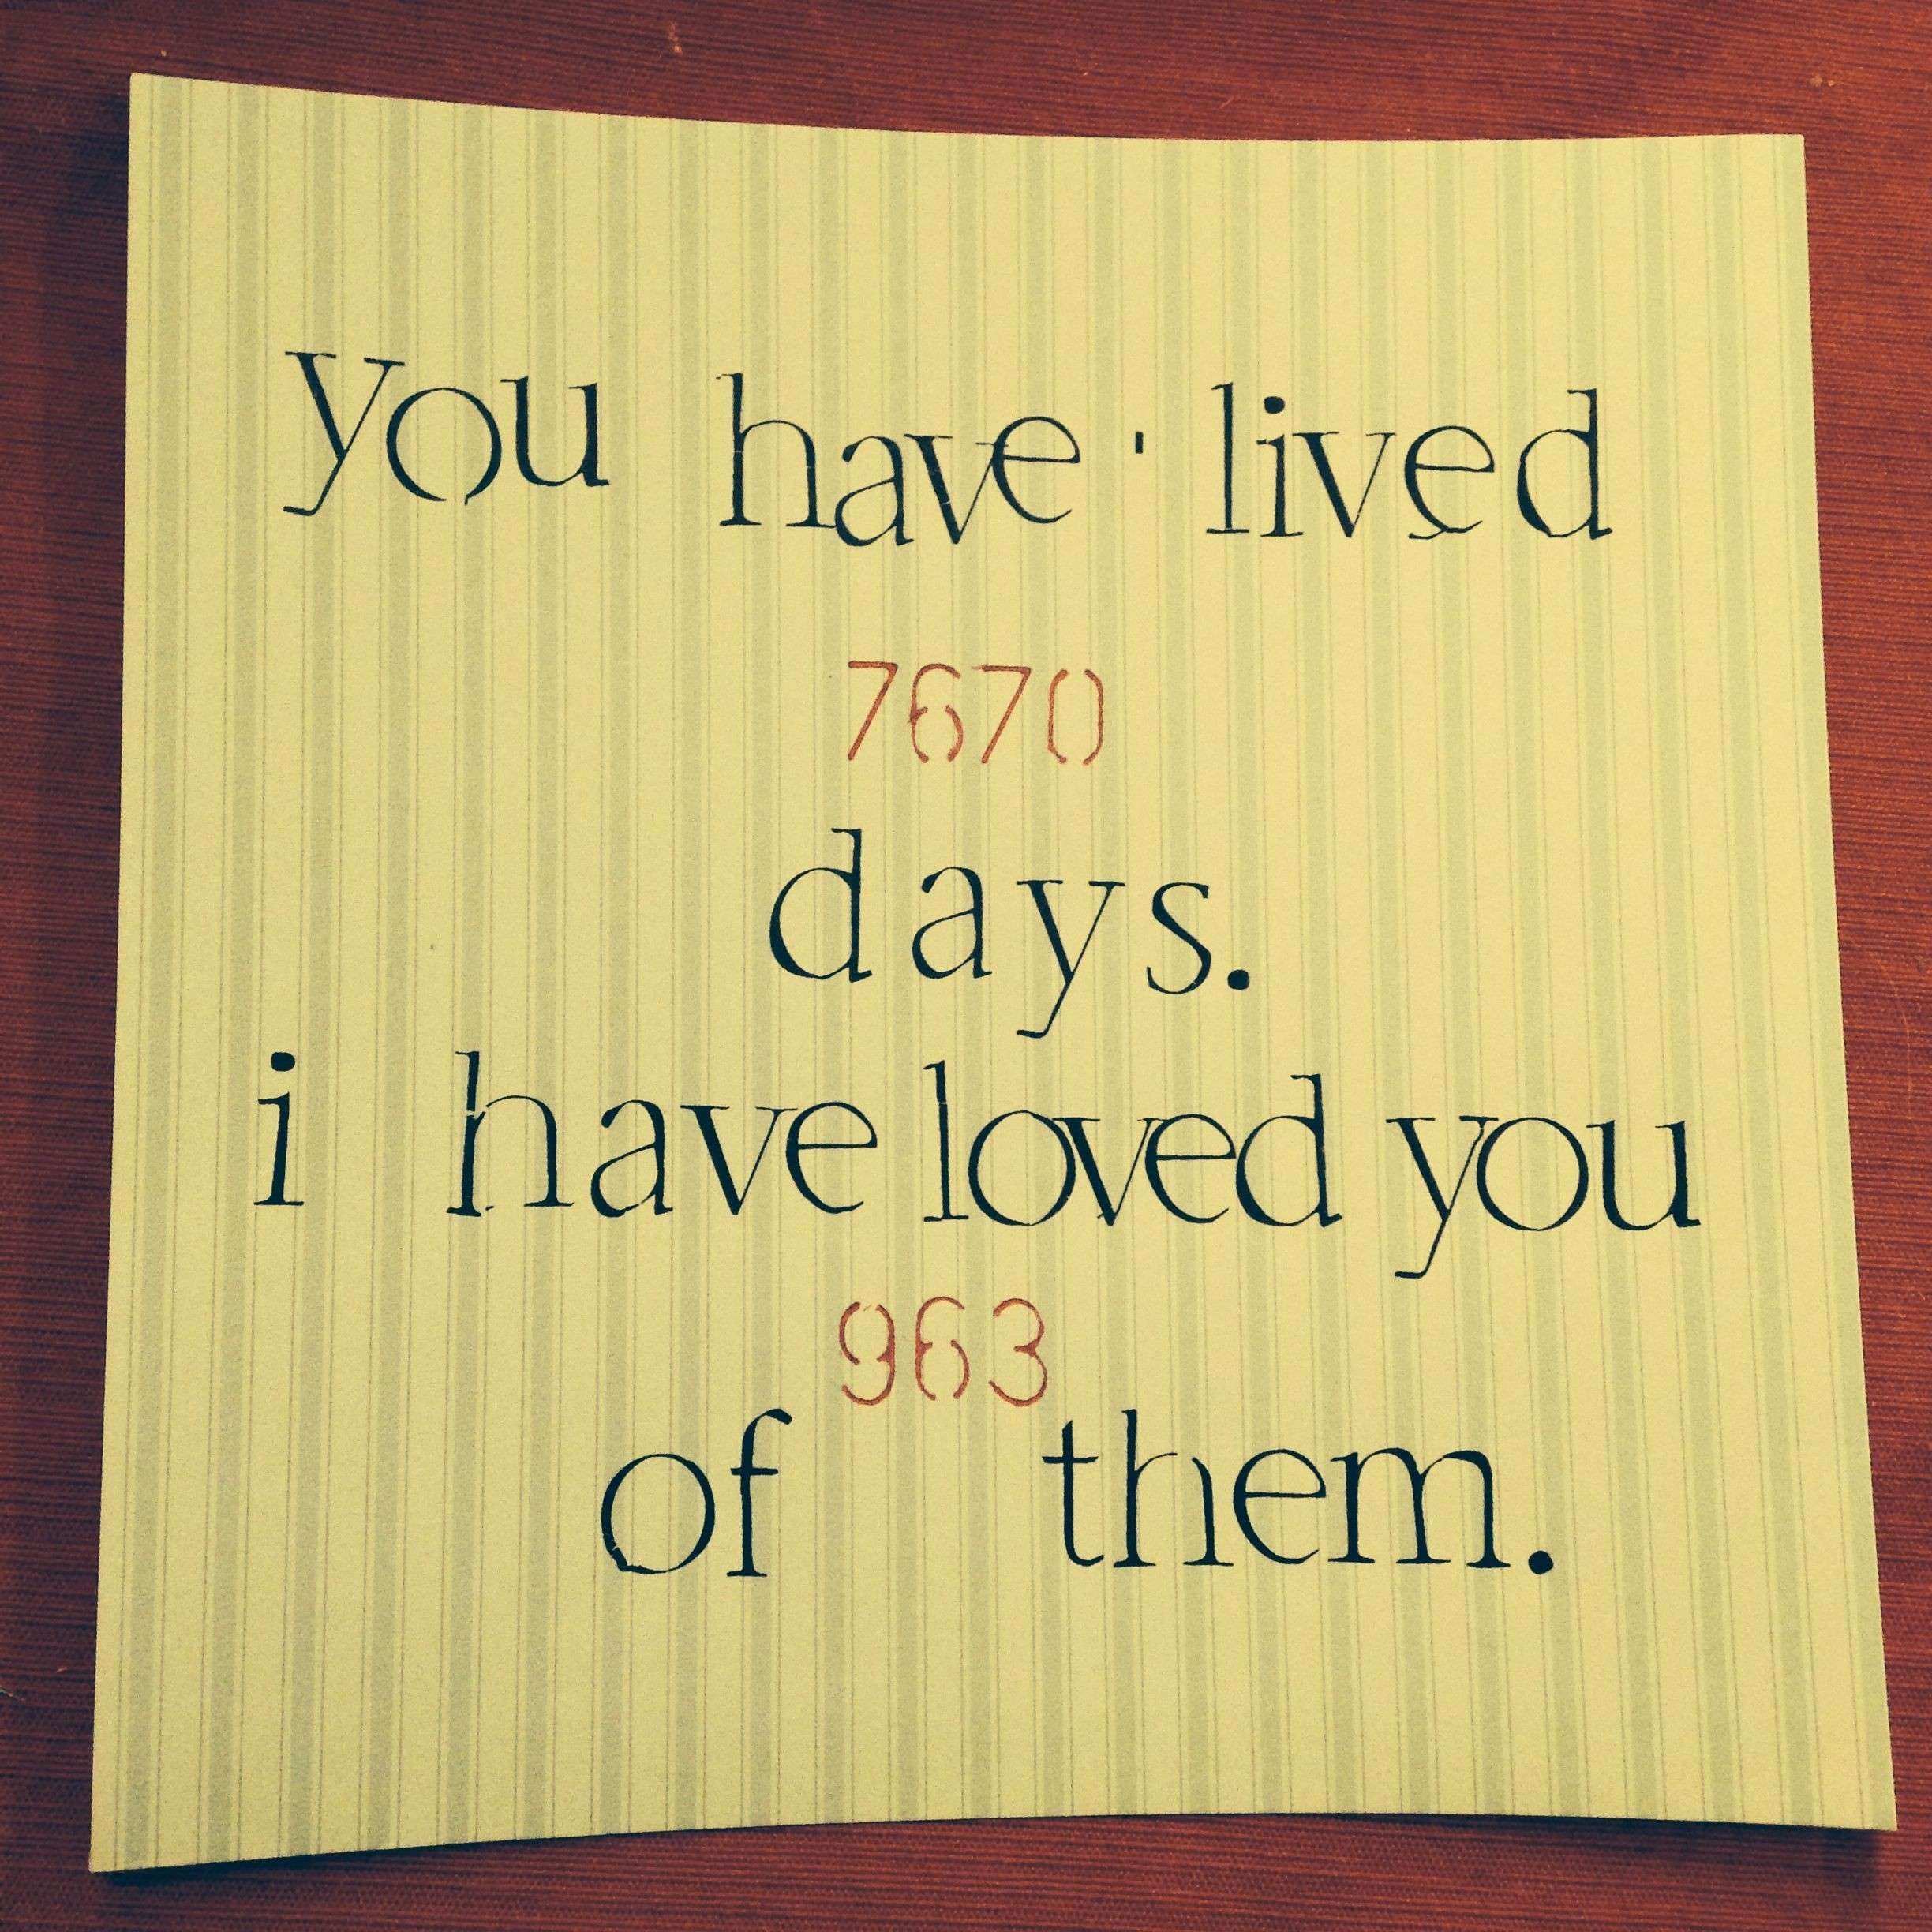 you have ' lived
7670
days.
i have loved you
963
of them.